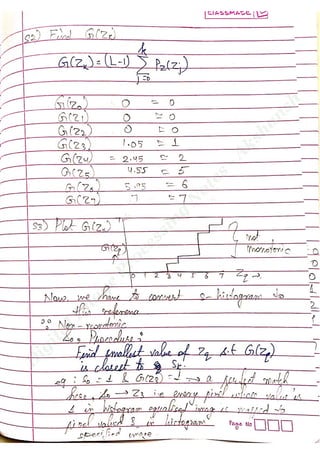 CLASSMATE
S2) Find G(Zq)
G(Zk) = (L-1) Σ Pz(Zj)
k
j=0
G(Z0) 0 = 0
G(Z1) 0 = 0
G(Z2) 0 = 0
G(Z3) 1.05 = 1
G(Z4) = 2.45 = 2
G(Z5) 4.55 = 5
G(Z6) 5.95 = 6
G(Z7) 7 = 7
S3) Plot G(Zq)
G(Zq)
not
monotonic
0 1 2 3 4 5 6 7 Zq →
Now, we have to convert S-histogram to
this reference
∵ Non-monotonic
So, Procedure:
Find smallest value of Zq s.t G(Zq)
is closest to Sk
eg: S0 = 1 & G(Z3) = 1 → a perfect match
here, S0 → Z3 i.e every pixel whose value is
1 in histogram equalised image is mapped to
pixel valued 3 in histogram
specified image
Page No